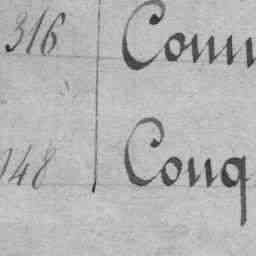 316 Conn
148 Conq